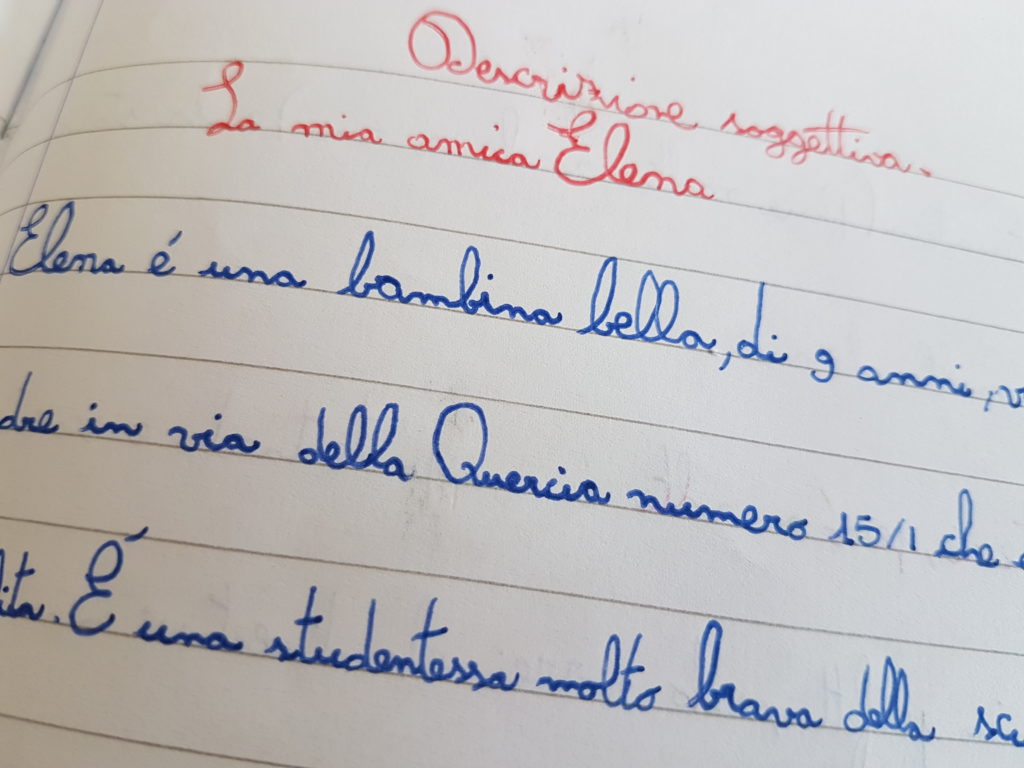 Descrizione soggettiva.
La mia amica Elena
Elena é una bambina bella, di 9 anni, v
dre in via della Quercia numero 15/1 che
lita. É una studentessa molto brava della scu